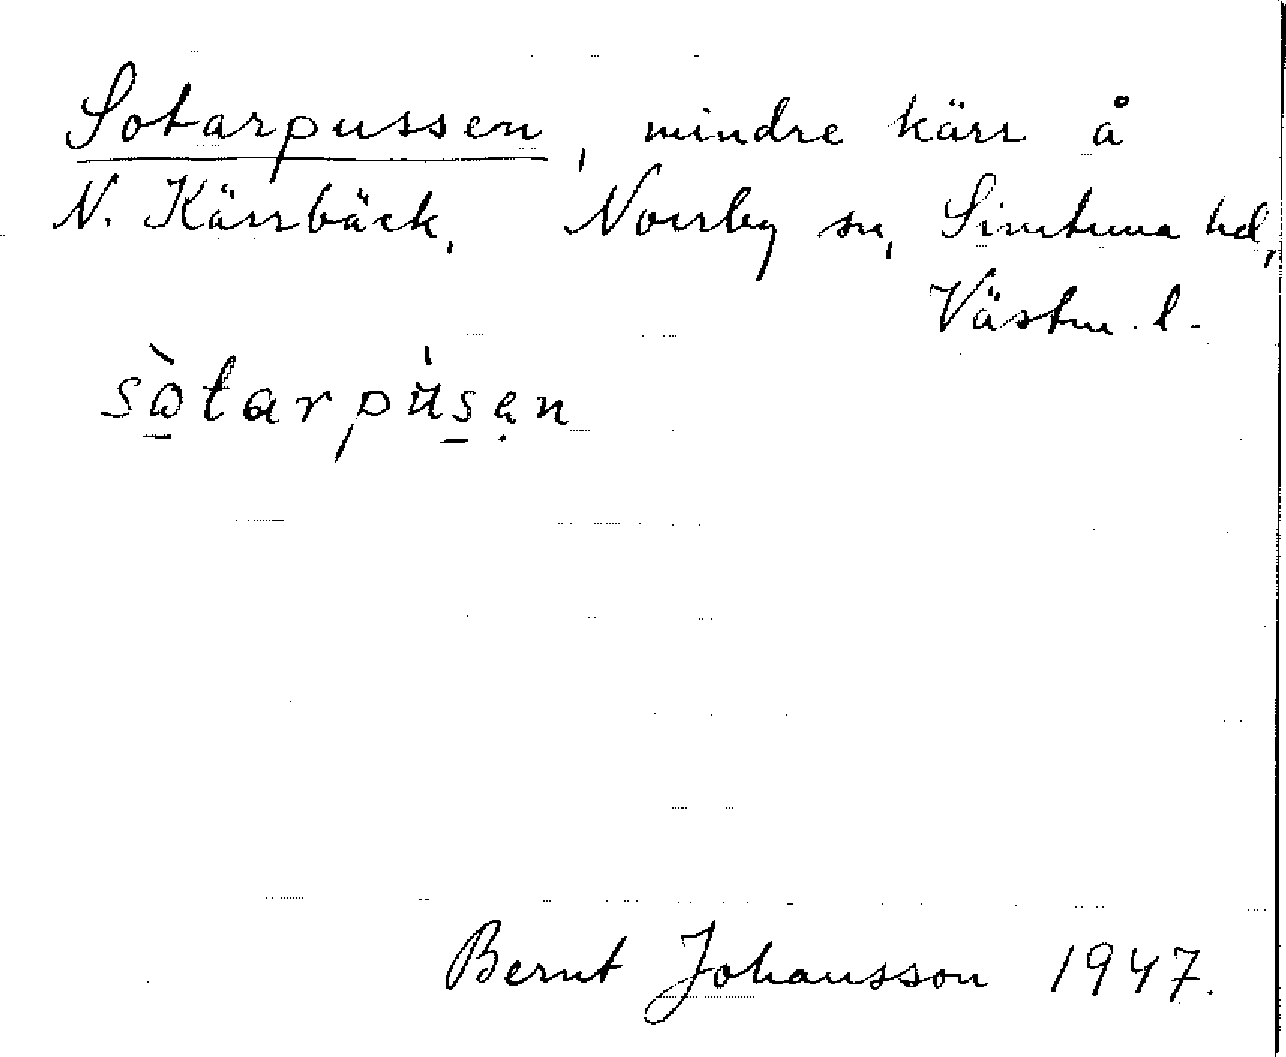 Sotarpussen, mindre kärr å
N. Kärrbäck, Norrby sn, Simtuna hd,
Västm. l.
sò̱tarpùs̱ẹn
Bernt Johansson 1947.